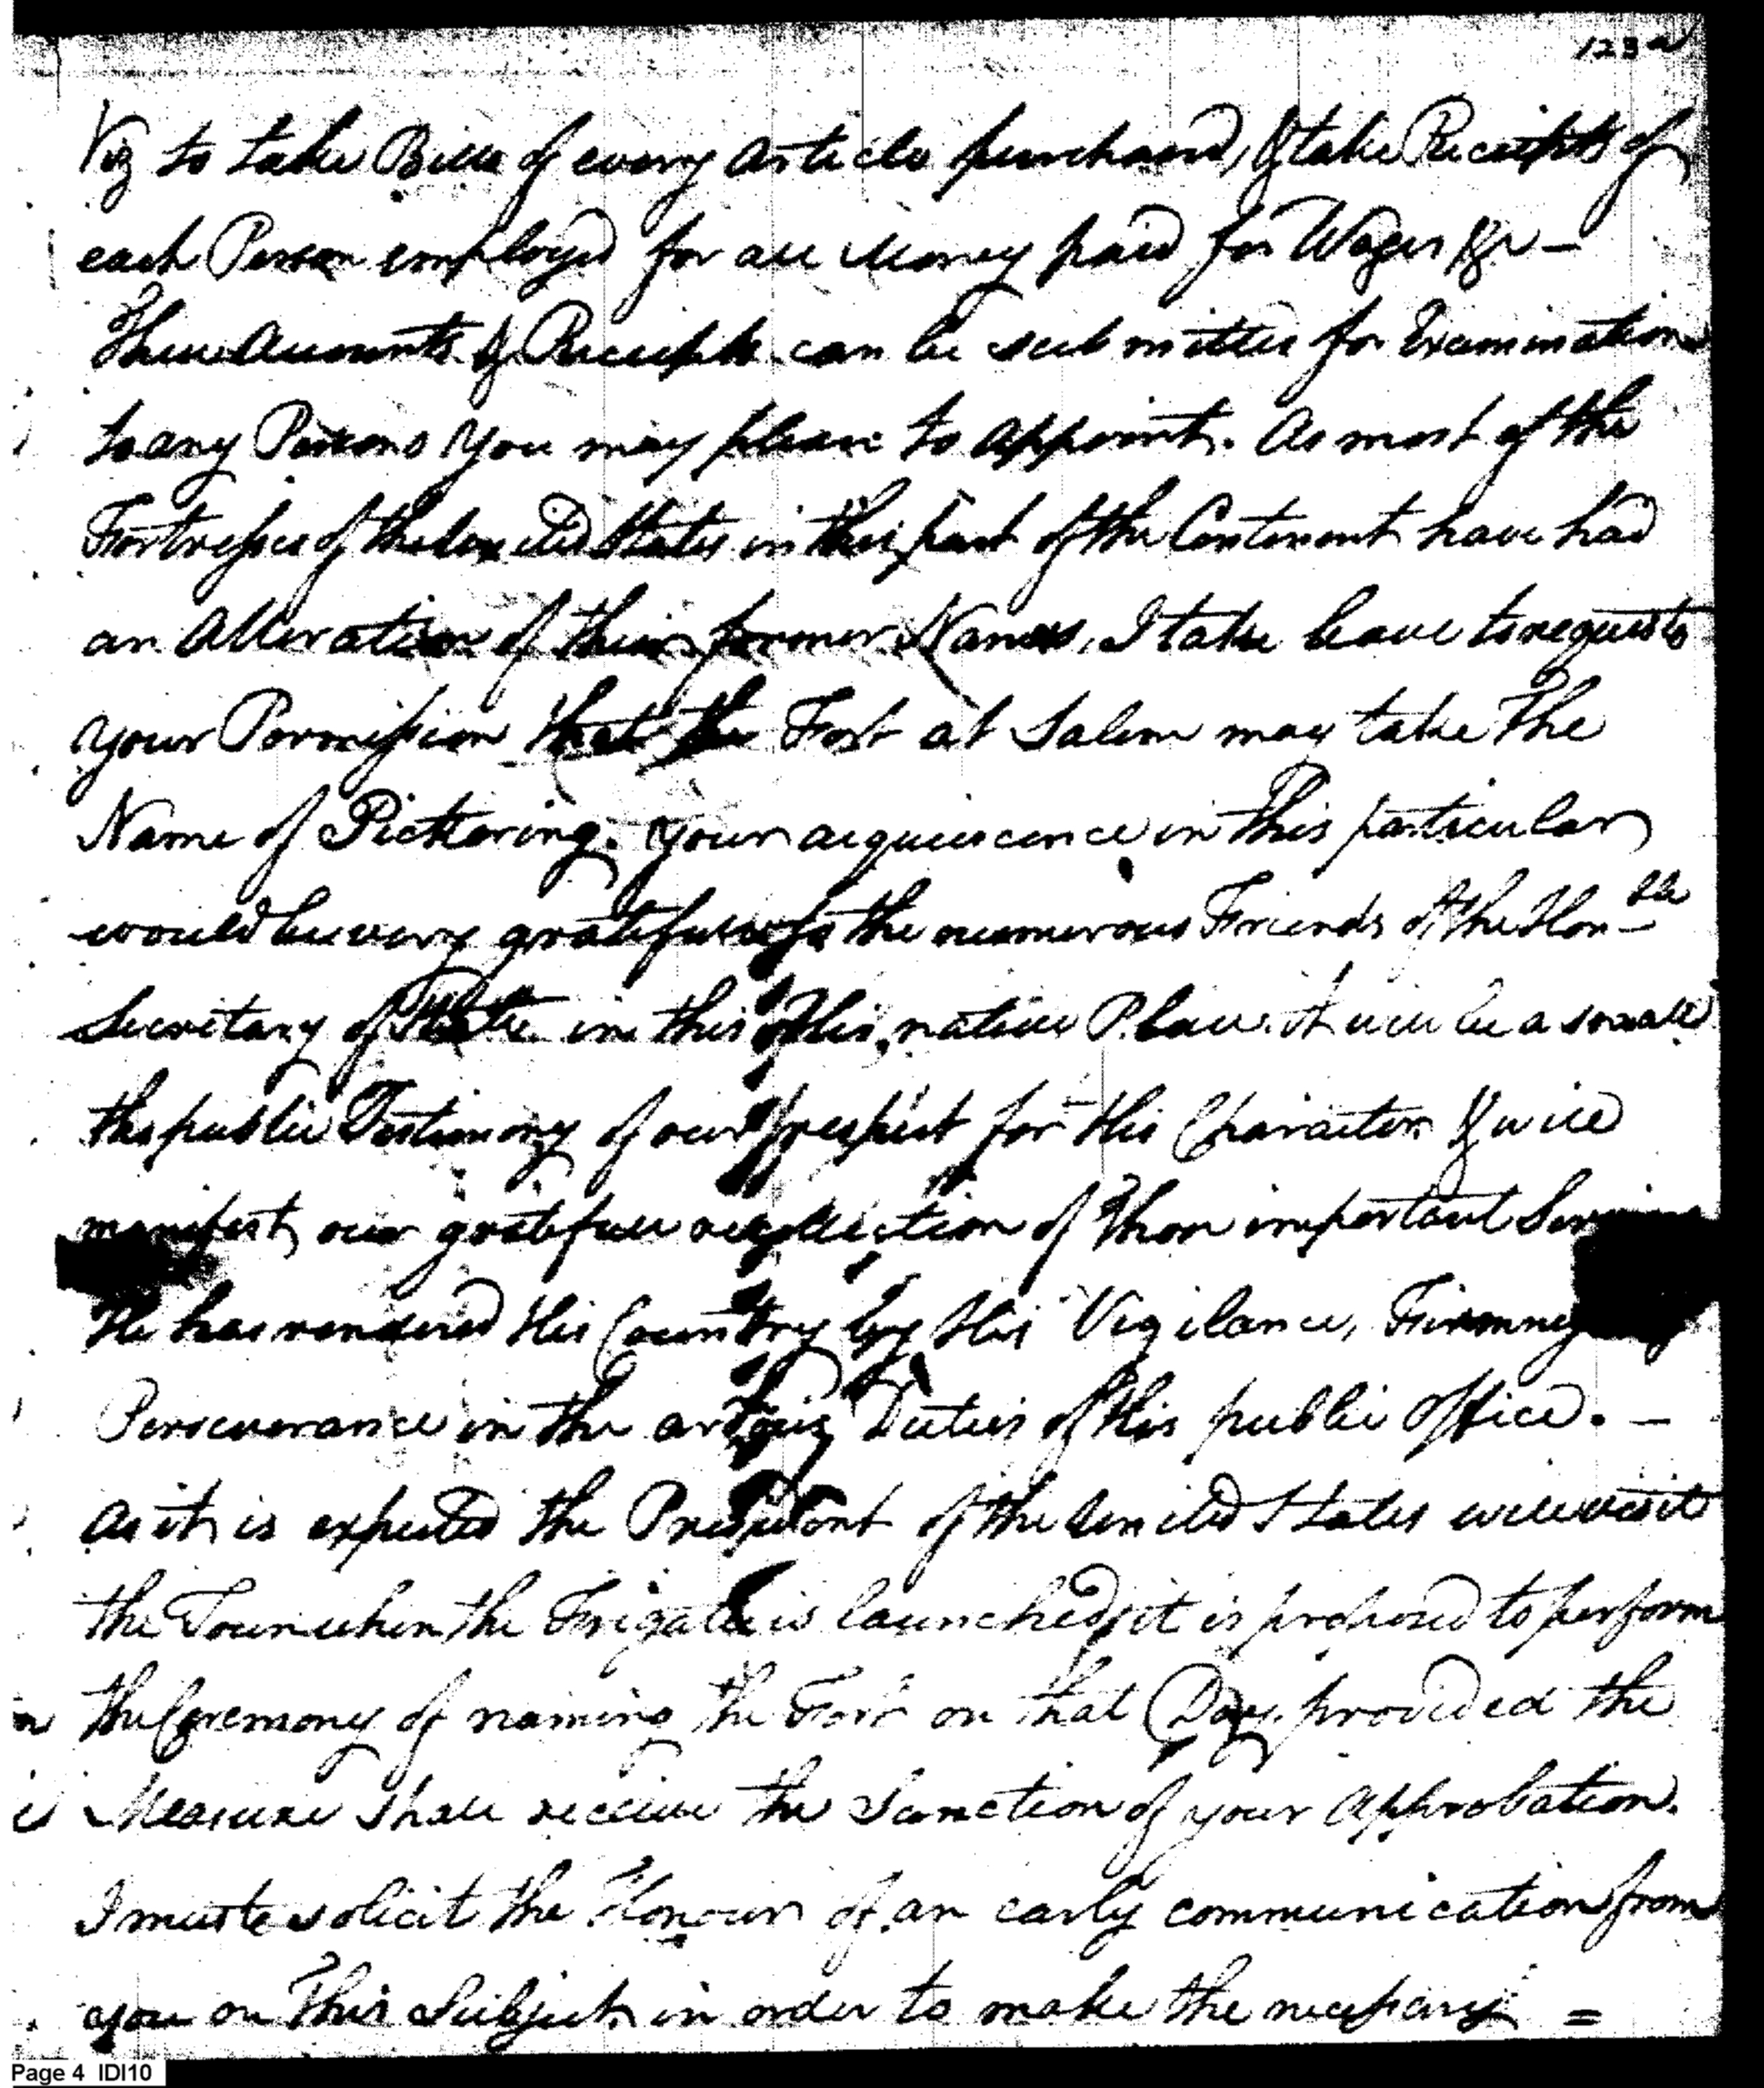 123 a
Viz to take Bills of every Article purchased, & take Receipts of
each Person employed for all Money paid for Wages &c —
These Accounts & Receipts can be submitted for Examination
to any Persons You may please to Appoint. As most of the
Fortresses of the United States in this part of the Continent have had
an Alteration of their former Names, I take leave to request
your Permission that the Fort at Salem may take The
Name of Pickering. Your acquiescence in This particular
would be very gratefull to the numerous Friends of the Honble
Secretary of State in this His native Place. It will be a small
tho public Testimony of our respect for His Character & will
manifest our gratefull recollection of Those important
He has rendered His Country by His Vigilance, Firmness
Perseverance in the arduous Duties of His public Office. —
As it is expected the President of the United States will visit
the Town when the Frigate is launched, it is proposed to perform
the Ceremony of naming the Fort on that Day, provided the
Measure shall receive the Sanction of your Approbation.
I must solicit the Honour of an early communication from
you on This Subject in order to make the necessary =
Page 4 IDI10